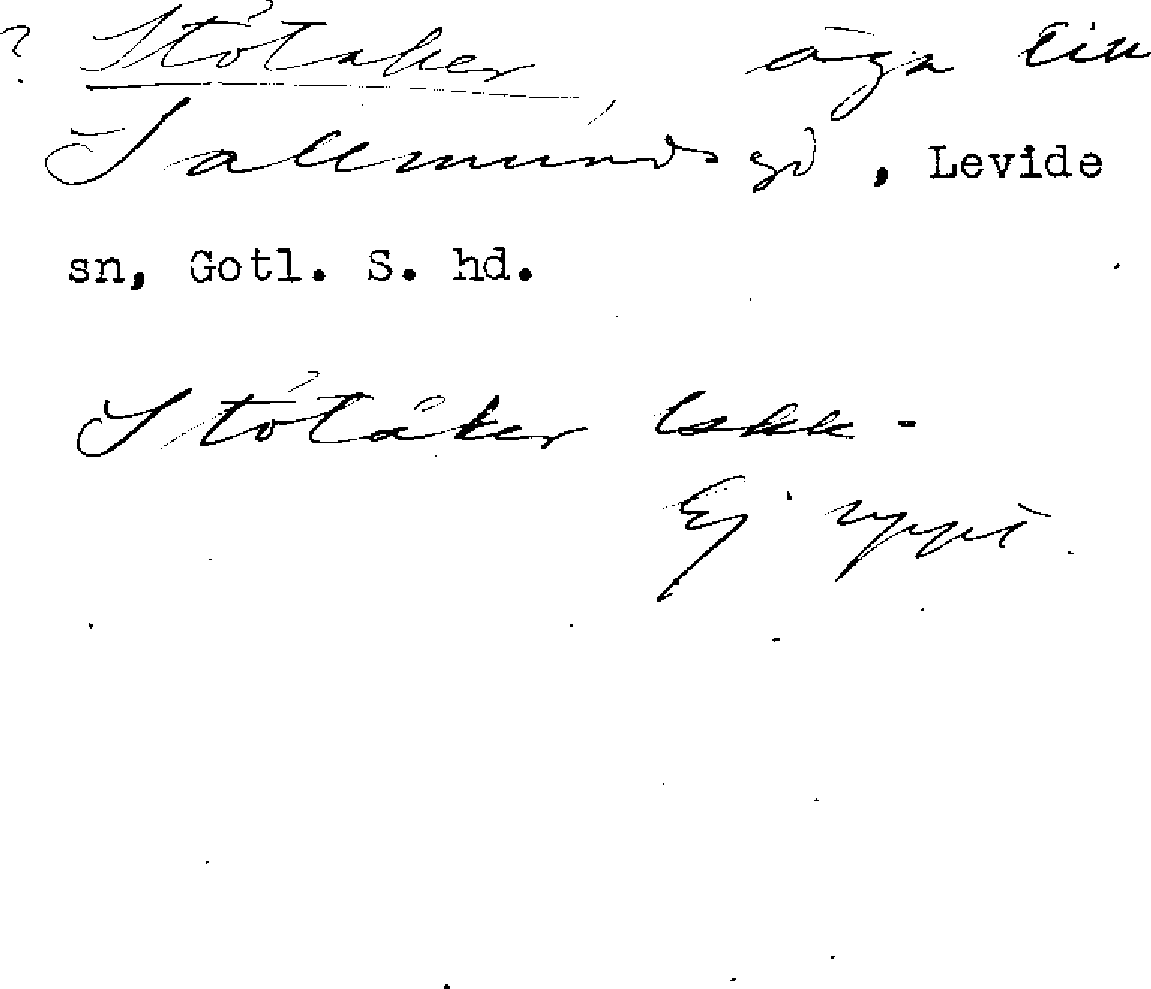 ? Stótaker äga till
Sallmunds gd, Levide
sn, Gotl. S. hd.
Stótåker
Ej uppt.